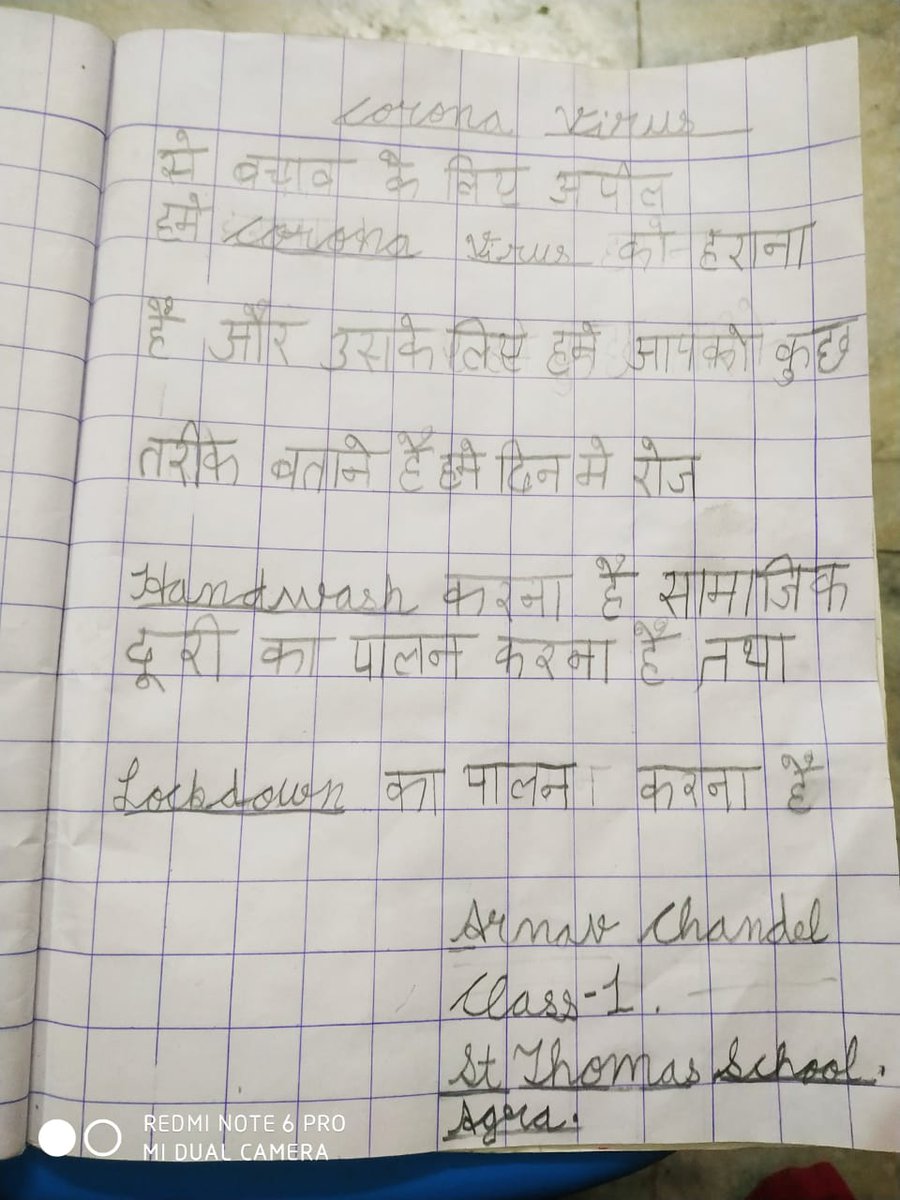 Corona Virus
से बचाव के लिए अपील
हमे Corona Virus को हराना
है और उसके लिए हमे आपको कुछ
तरीके बताने है हमे दिन मे रोज
Handwash करना है सामाजिक
दूरी का पालन करना है तथा
Lockdown का पालन करना है
Arnav Chandel
Class-1.
St Thomas School.
Agra.
REDMI NOTE 6 PRO
MI DUAL CAMERA